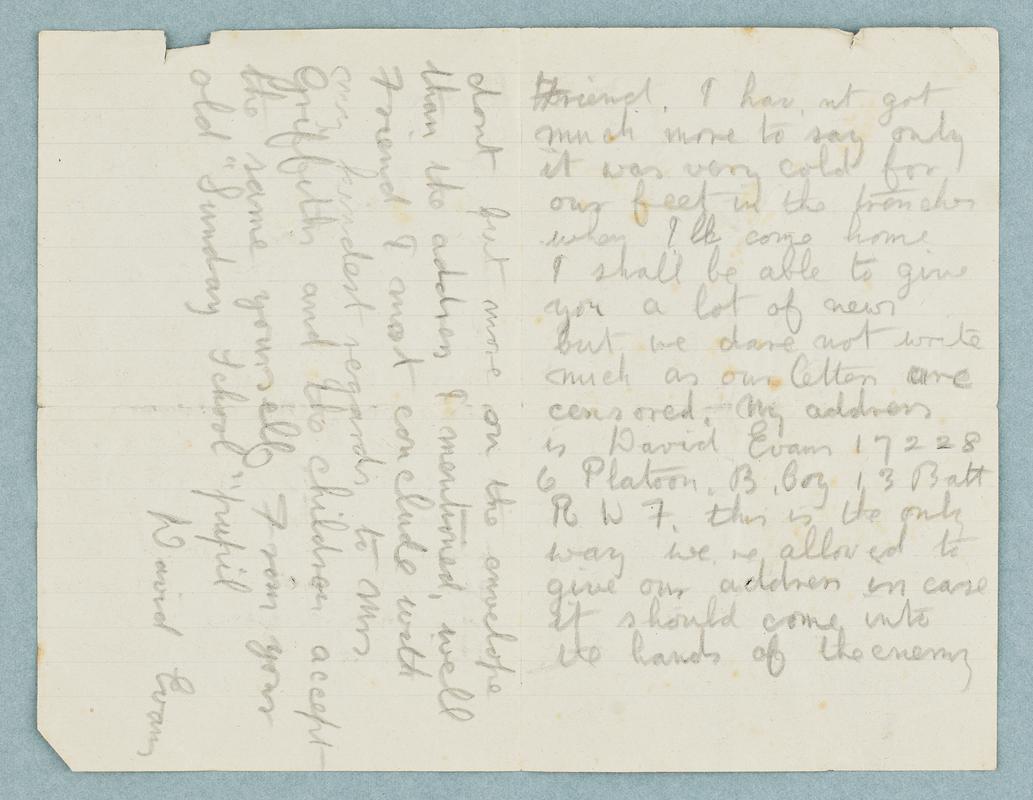 Friend. I hav'nt got
much more to say only
it was very cold for
our feet in the trenches
when I'll come home
I shall be able to give
you a lot of news
but we dare not write
much as our letters are
censored. My address
is David Evans 17228
6 Platoon. B. Coy 13 Batt
R W F. this is the only
way we're allowed to
give our address in case
it should come into
the hands of the enemy
dont put more on the envelope
than the address I mentioned, well
Friend I must conclude with
my kindest regards to Mrs.
Griffiths and the children accept
the same yourself From your
old "Sunday School" pupil
David Evans